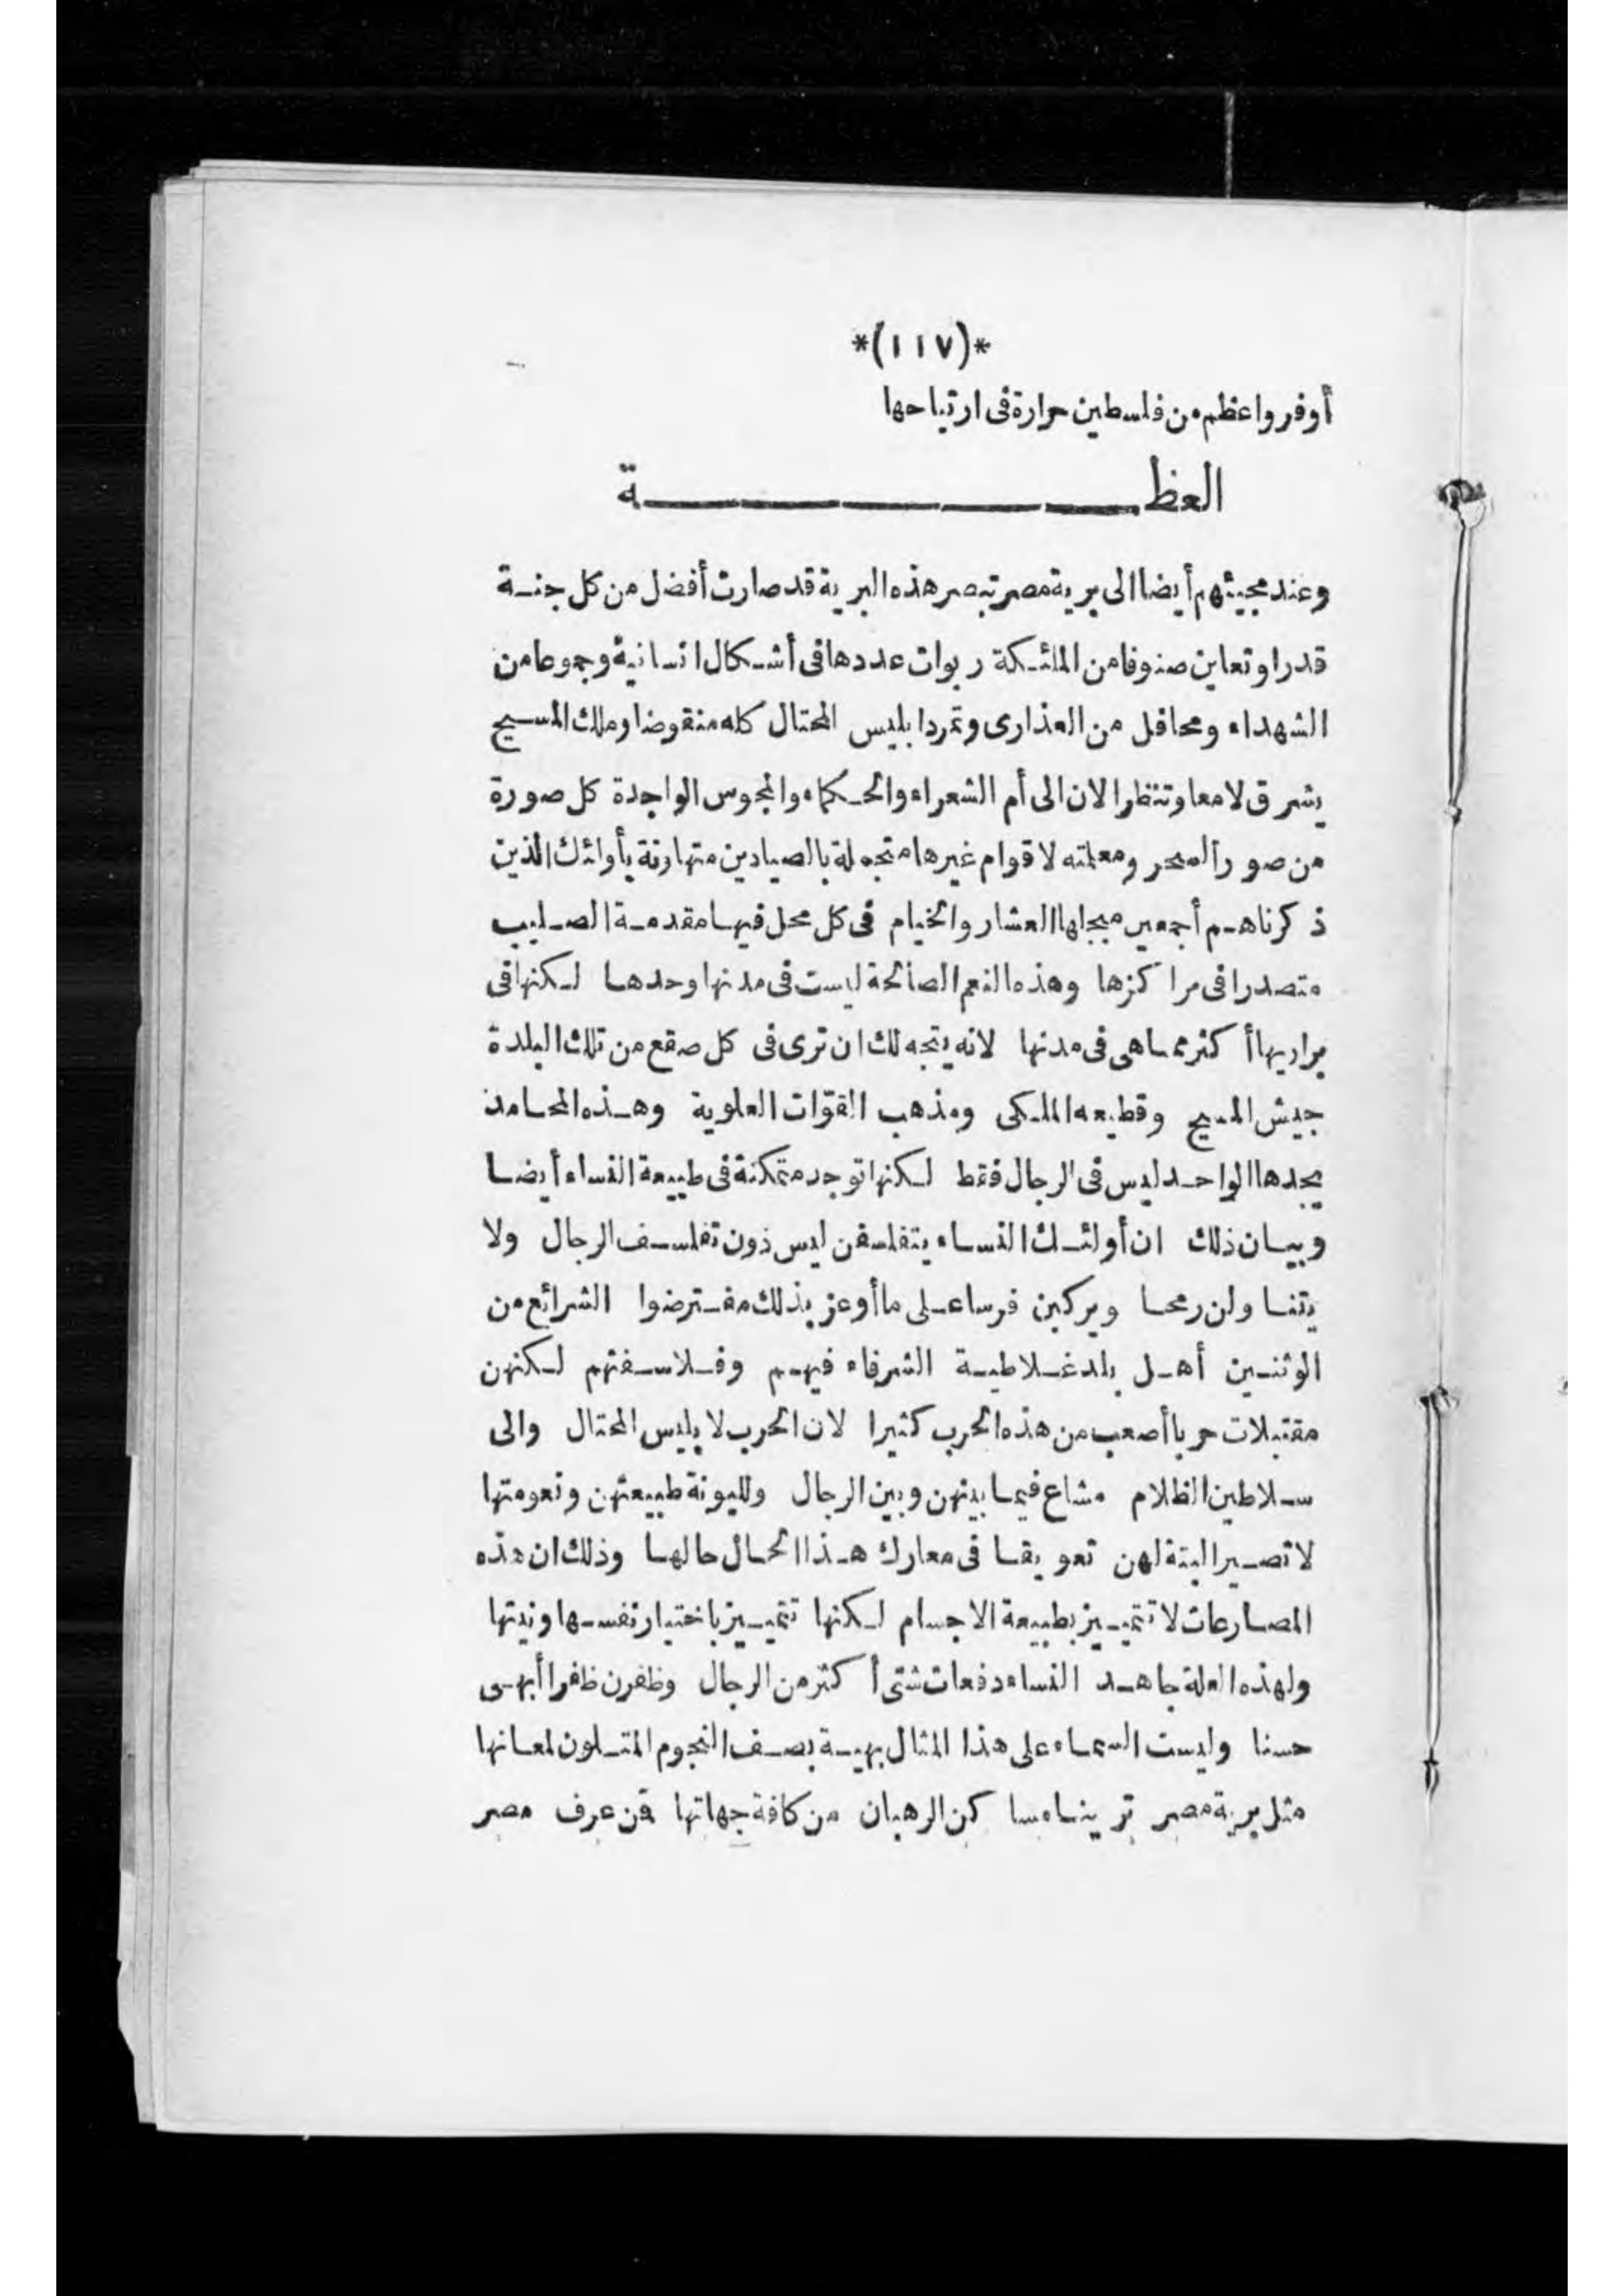 *(١١٧)*
أوفر واعظم من فلسطين حرارة فى ارتياحها
العظـــــة
وعند مجيئهم أيضا الى برية مصر تبصر هذه البرية قد صارت أفضل من كل جنـة
قدرا وتعاين صنوفا من الملئـكة ربوات عددها فى أشـكال انسانية وجموعا من
الشهداء ومحافل من العذارى وتمرد ابليس المحتال كله منقوضا وملك المسـيح
يشرق لامعا وتنظر الان الى أم الشعراء والحـكماء والمجوس الواجدة كل صورة
من صور السحر ومعلمته لاقوام غيرها متجملة بالصيادين متهاونة بأولئك الذين
ذكرناهـم أجمعين مبجلها العشار والخيام فى كل محل فيهـا مقدمـة الصـليب
متصدرا فى مراكزها وهذه النعم الصالحة ليست فى مدنها وحدهـا لـكنها فى
براريها أكثر ممـا هى فى مدنها لانه يتجه لك ان ترى فى كل صقع من تلك البلدة
جيش المسيح وقطيعه الملـكى ومذهب القوّات العلوية وهـذه المحـامد
يجدها الواحـد ليس فى الرجال فقط لـكنها توجد متمكنة فى طبيعة النساء أيضـا
وبيـان ذلك ان أولئـك النسـاء يتفلسفن ليس دون تفلسـف الرجال ولا
يتنـاولن رمحـا ويركبن فرسا عـلى ما أوعز بذلك مفـترضوا الشرائع من
الوثنـيين أهـل بلد غـلاطيـة الشرفاء فيهـم وفـلاسـفتهم لـكنهن
مقتبلات حربا أصعب من هذه الحرب كثيرا لان الحرب لابليس المحتال والى
سـلاطين الظلام مشاع فيمـا بينهن وبين الرجال ولليونة طبيعتهن ونعومتها
لا تصـير البتة لهن تعويقـا فى معارك هـذا الحـال حالهـا وذلك ان هذه
المصـارعات لا تتميـيز بطبيعة الاجسام لـكنها تتميـيز باختيار نفسـها ونيتها
ولهذه العلة جاهـد النساء دفعات شتى أكثر من الرجال وظفرن ظفرا أبهـى
حسنا وليست السمـاء على هذا المثال بهيـة بصـف النجوم المتـلون لمعـانها
مثل برية مصر ترينـا مسـاكن الرهبان من كافة جهاتها فمن عرف مصر